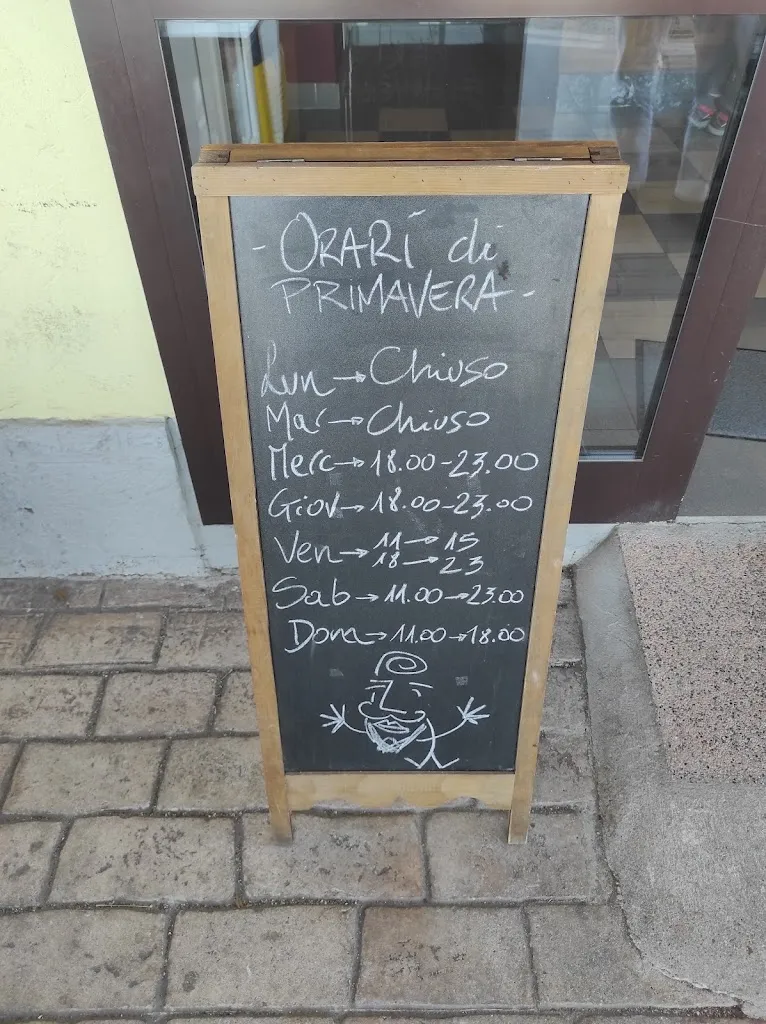 - ORARI di
PRIMAVERA -
Lun → Chiuso
Mar → Chiuso
Merc → 18.00 - 23.00
Giov → 18.00 - 23.00
Ven → 11 → 15
18 → 23
Sab → 11.00 → 23.00
Dom → 11.00 → 18.00